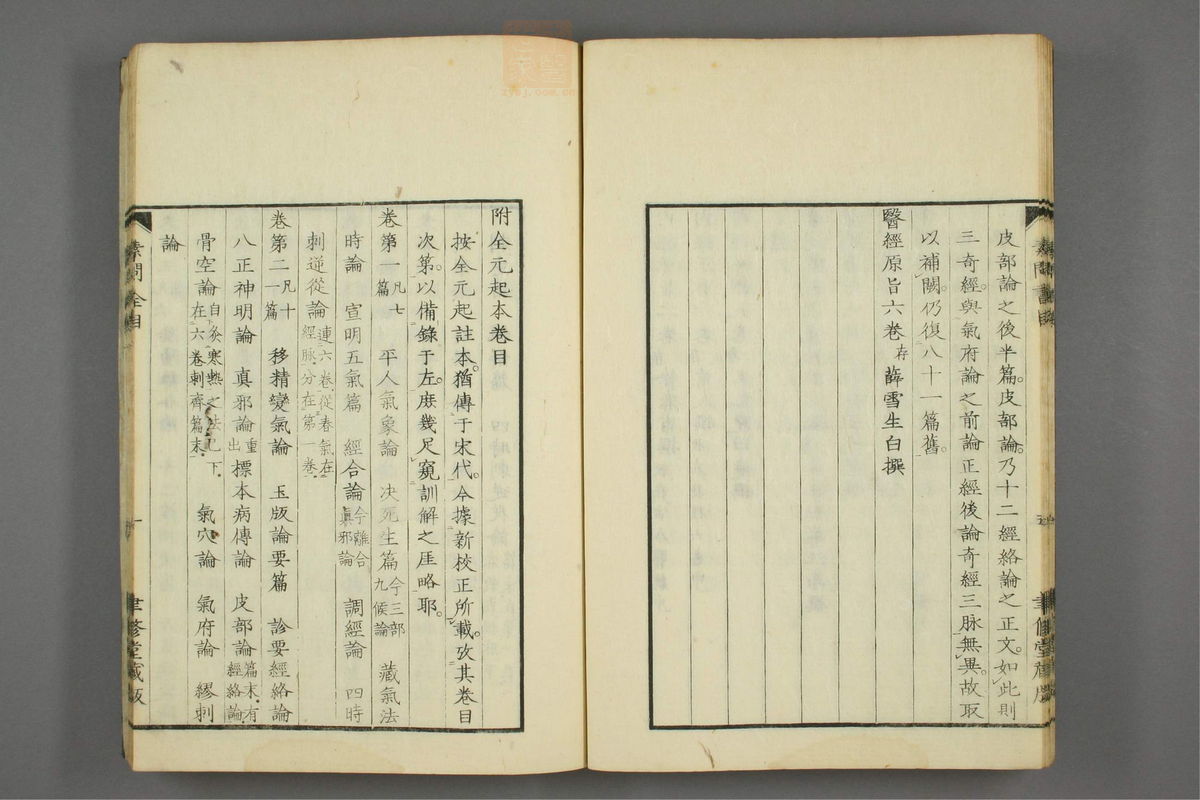 皮部論之後半篇。皮部論。乃十二經絡論之正文。如此則
三奇經。與氣府論之前論正經後論奇經三脉無異。故取
以補闕。仍復八十一篇舊。
醫經原旨六卷存 薛雪生白撰
附全元起本卷目
按全元起註本。猶傳于宋代。今據新校正所載。攷其卷目
次第。以備錄于左。庶幾足窺訓解之厓略耶。
卷第一凡七篇 平人氣象論 決死生篇今三部九候論 藏氣法
時論 宣明五氣篇 經合論今離合眞邪論 調經論 四時
刺逆從論連六卷從春氣在經脈分在第一卷
卷第二凡十一篇 移精變氣論 玉版論要篇 診要經絡論
八正神明論 眞邪論重出 標本病傳論 皮部論篇末有經絡論
骨空論自灸寒熱之法已下在六卷刺齊篇末 氣穴論 氣府論 繆刺
論
素問 全目
一
聿修堂藏版
zysj.com.cn